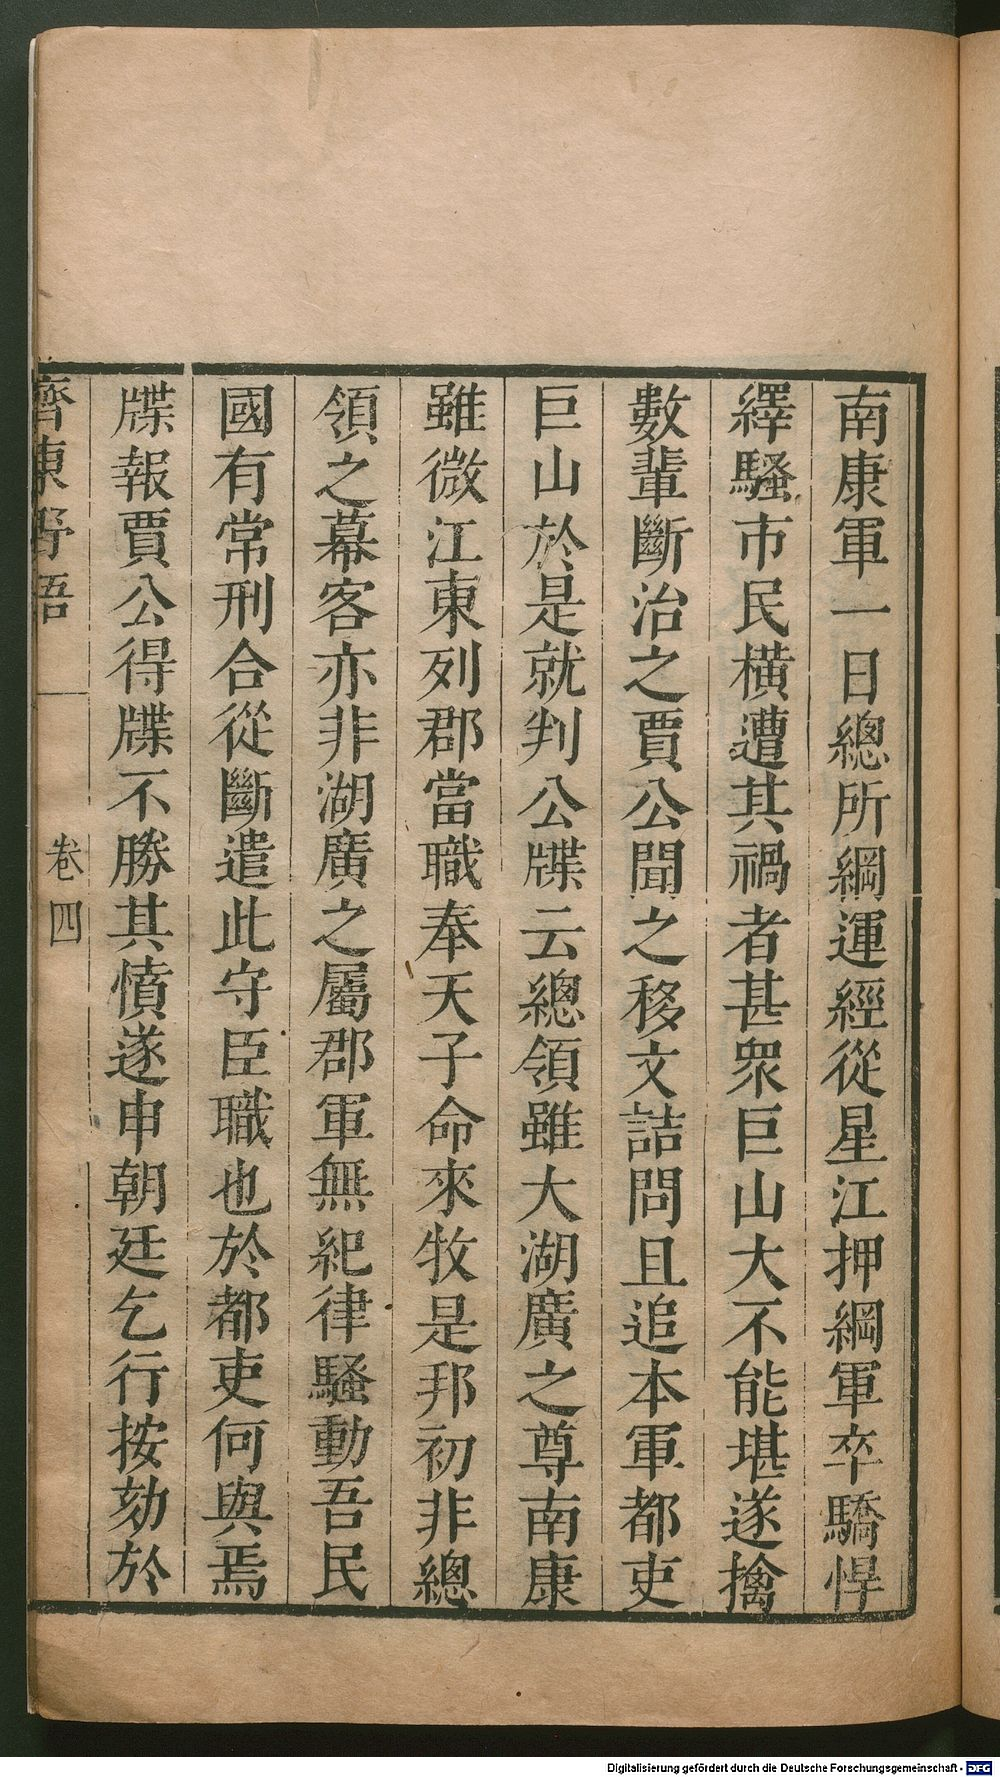 南康軍一日總所綱運經從星江押綱軍卒驕悍
繹騷市民橫遭其禍者甚衆巨山大不能堪遂擒
數輩斷治之賈公聞之移文詰問且追本軍都吏
巨山於是就判公牒云總領雖大湖廣之尊南康
雖微江東列郡當職奉天子命來牧是邦初非總
領之幕客亦非湖廣之屬郡軍無紀律騷動吾民
國有常刑合從斷遣此守臣職也於都吏何與焉
牒報賈公得牒不勝其憤遂申朝廷乞行按劾於
齊東野語 卷四
Digitalisierung gefördert durch die Deutsche Forschungsgemeinschaft - DFG